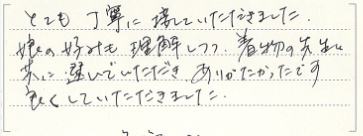 とても丁寧に接していただきました.
娘の好みも理解しつつ、着物の先生と
共に選んでいただき ありがたかったです
良くしていただきました.